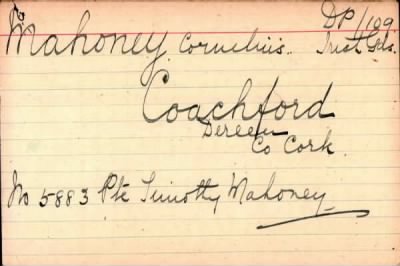 DP/109
Mahoney Cornelius. Irish Gds.
Coachford
Dereen
Co Cork.
No 5883 Pte Timothy Mahoney